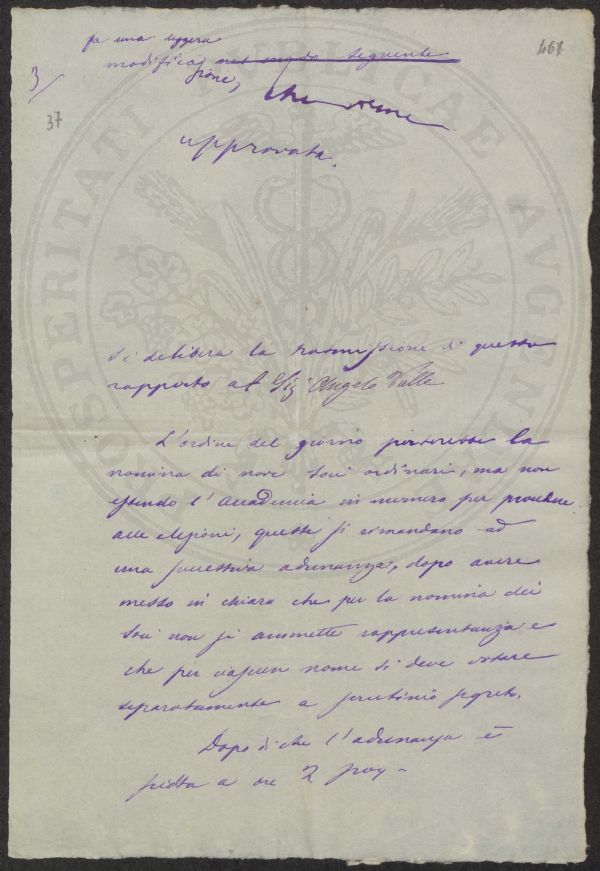 fa una leggera
modifica nel modo seguente
zione,
che viene
approvata.
3
37
467
PROSPERITATI PVBLICAE AVGENDAE
Si delibera la trasmissione di questo
rapporto al Sig. Angelo Valle
L'ordine del giorno porterebbe la
nomina di nove Soci ordinari, ma non
essendo l'Accademia in numero per procedere
alle elezioni, queste si rimandano ad
una successiva adunanza, dopo avere
messo in chiaro che per la nomina dei
Soci non si ammette rappresentanza e
che per ciascun nome si deve votare
separatamente a scrutinio segreto.
Dopo di che l'adunanza è
sciolta a ore 2 pom